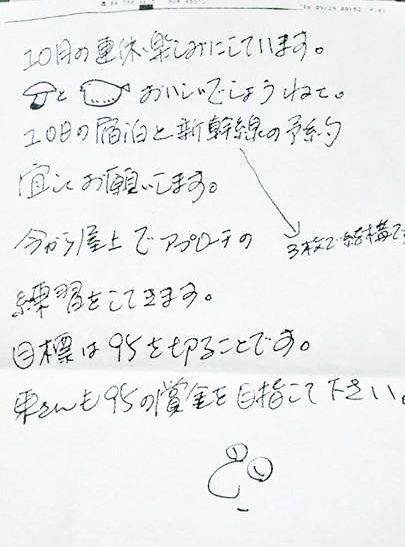 10月の連休、楽しみにしています。
と おいしいでしょうねぇ。
10日の宿泊と新幹線の予約
宜しくお願いします。
3枚で結構です
今から屋上でアプローチの
練習をしてきます。
目標は95を切ることです。
東さんも95の賞金を目指して下さい。